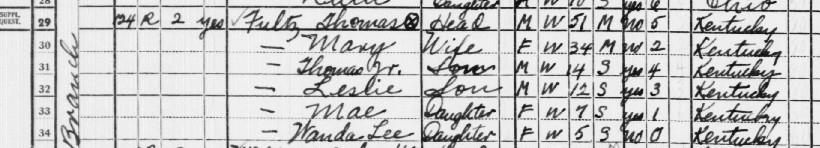 28 Daughter F W 10 S yes 6 Ohio
SUPPL. QUEST. 29 124 R 2 yes Fultz, Thomas ⊗ Head M W 51 M no 5 Kentucky
30 — Mary Wife F W 34 M no 2 Kentucky
31 — Thomas Jr. Son M W 14 S yes 4 Kentucky
32 — Leslie Son M W 12 S yes 3 Kentucky
33 — Mae Daughter F W 7 S yes 1 Kentucky
34 — Wanda Lee Daughter F W 5 S no 0 Kentucky
Branch